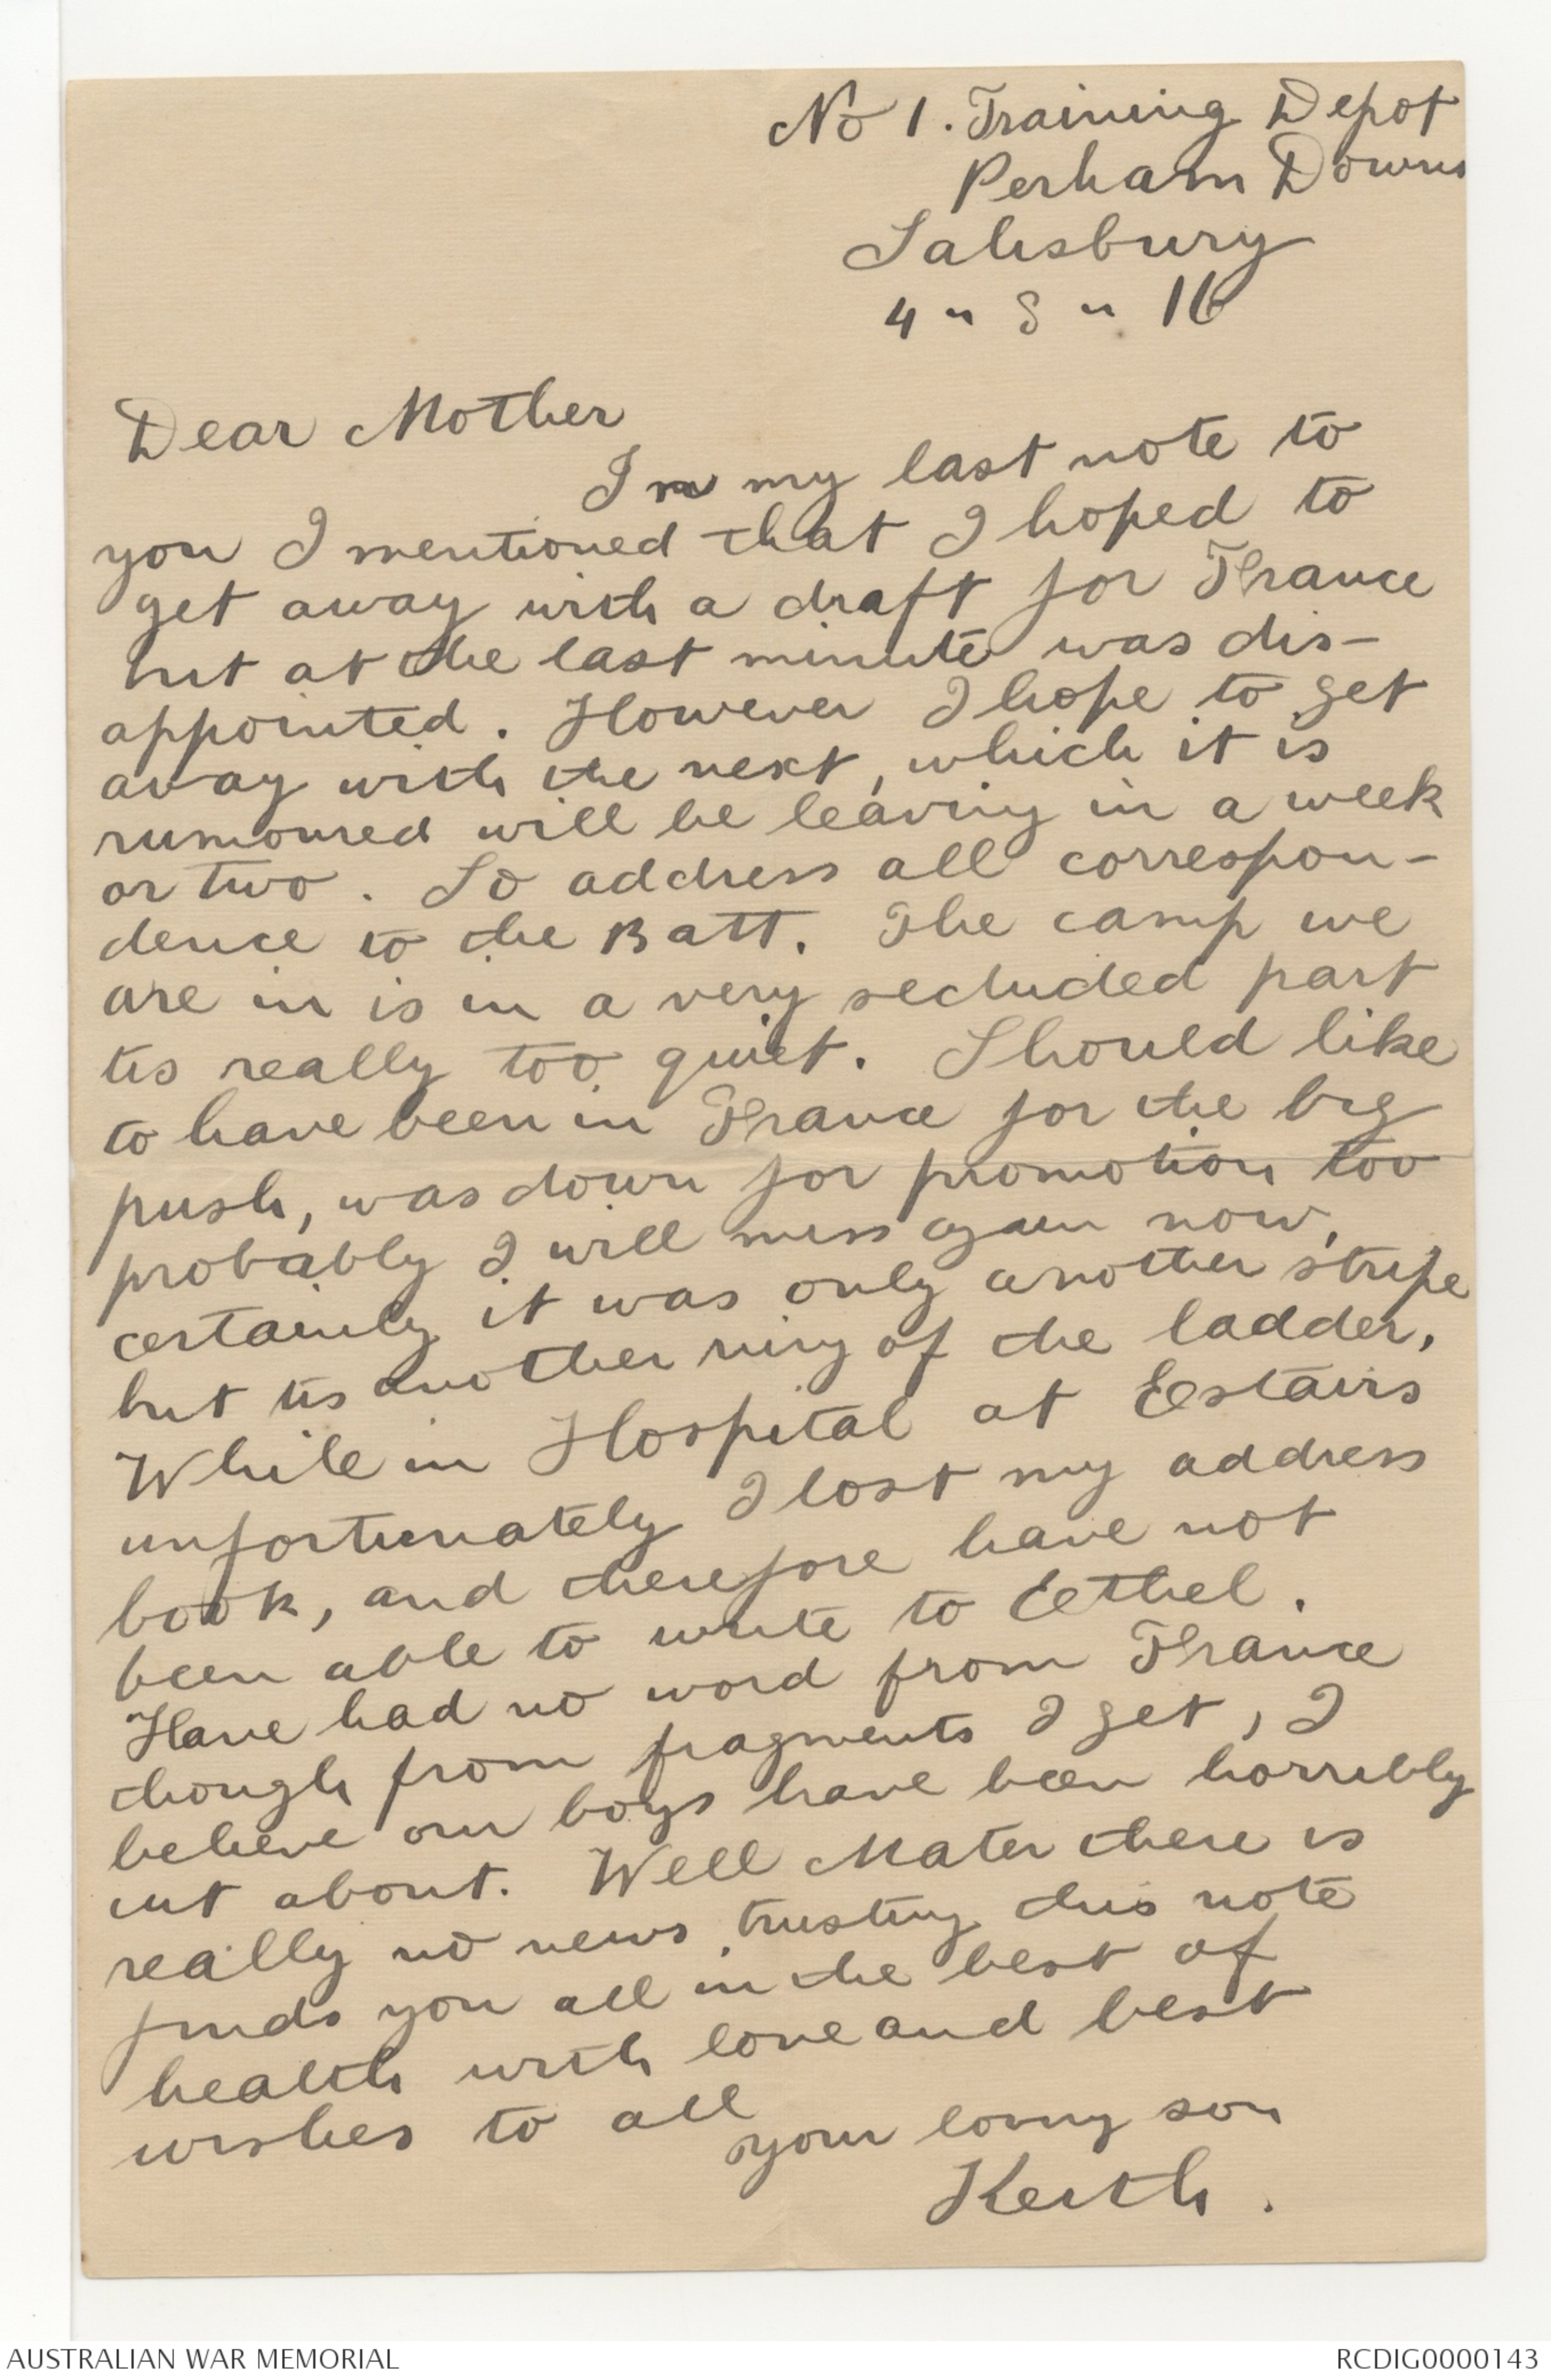 No 1. Training Depot
Perham Downs
Salisbury
4 " 8 " 16
Dear Mother
In my last note to
you I mentioned that I hoped to
get away with a draft for France
but at the last minute was dis-
appointed. However I hope to get
away with the next, which it is
rumoured will be leaving in a week
or two. So address all correspon-
dence to the Batt. The camp we
are in is in a very secluded part
tis really too quiet. Should like
to have been in France for the big
push, was down for promotion too
probably I will miss again now,
certainly it was only another stripe
but tis another ring of the ladder.
While in Hospital at Estairs
unfortunately I lost my address
book, and therefore have not
been able to write to Ethel.
Have had no word from France
though from fragments I get, I
believe our boys have been horribly
cut about. Well Mater there is
really no news, trusting this note
finds you all in the best of
health with love and best
wishes to all
your loving son
Keith.
AUSTRALIAN WAR MEMORIAL
RCDIG0000143